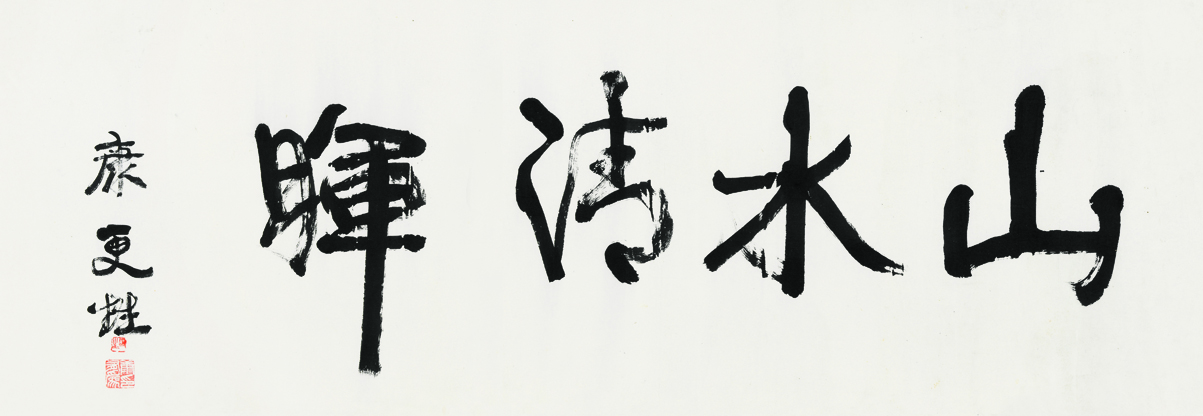 山水清暉
康更甡